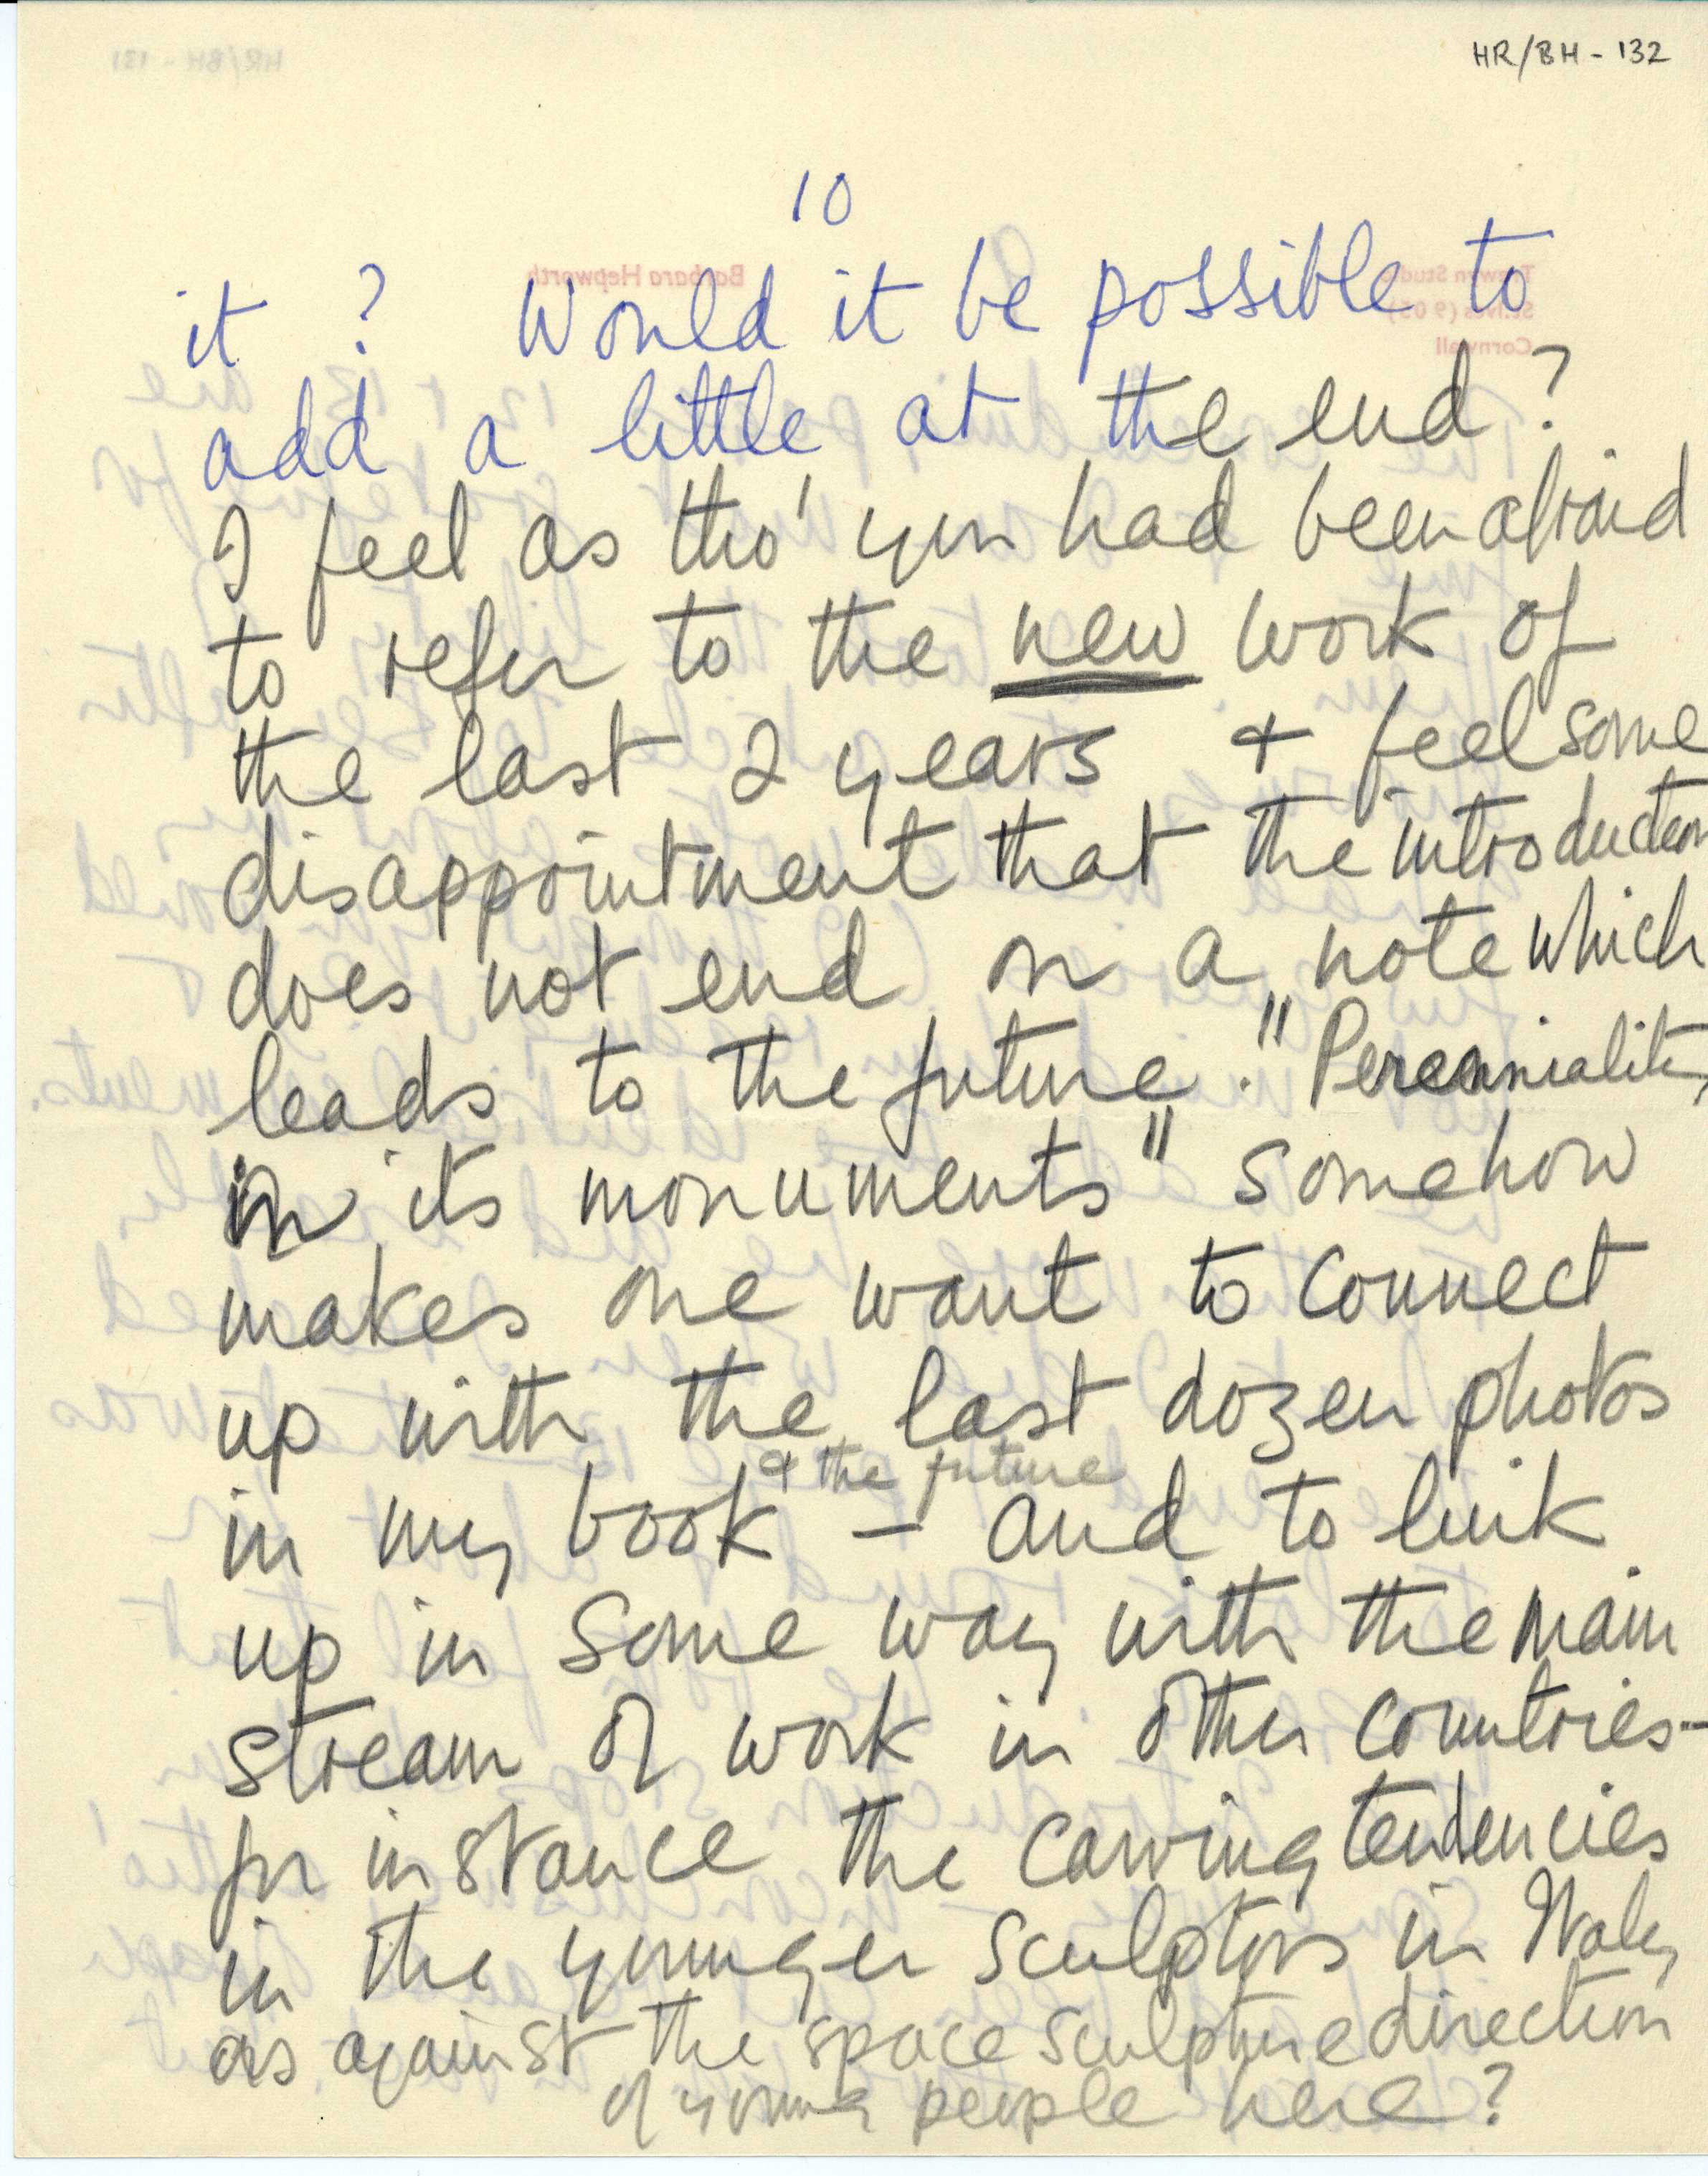 HR/BH - 132
10
it ? Would it be possible to
add a little at the end?
I feel as tho' you had been afraid
to refer to the new work of
the last 2 years & feel some
disappointment that the introduction
does not end on a note which
leads to the future. "Perennially
in its monuments" somehow
makes one want to connect
up with the last dozen photos
& the future
in my book – and to link
up in some way with the main
stream of work in other countries –
for instance the carving tendencies
in the younger sculptors in Italy
as against the space sculpture direction
of young people here?
Barbara Hepworth
Trewyn Studio
St. Ives
Cornwall
HR/BH - 131